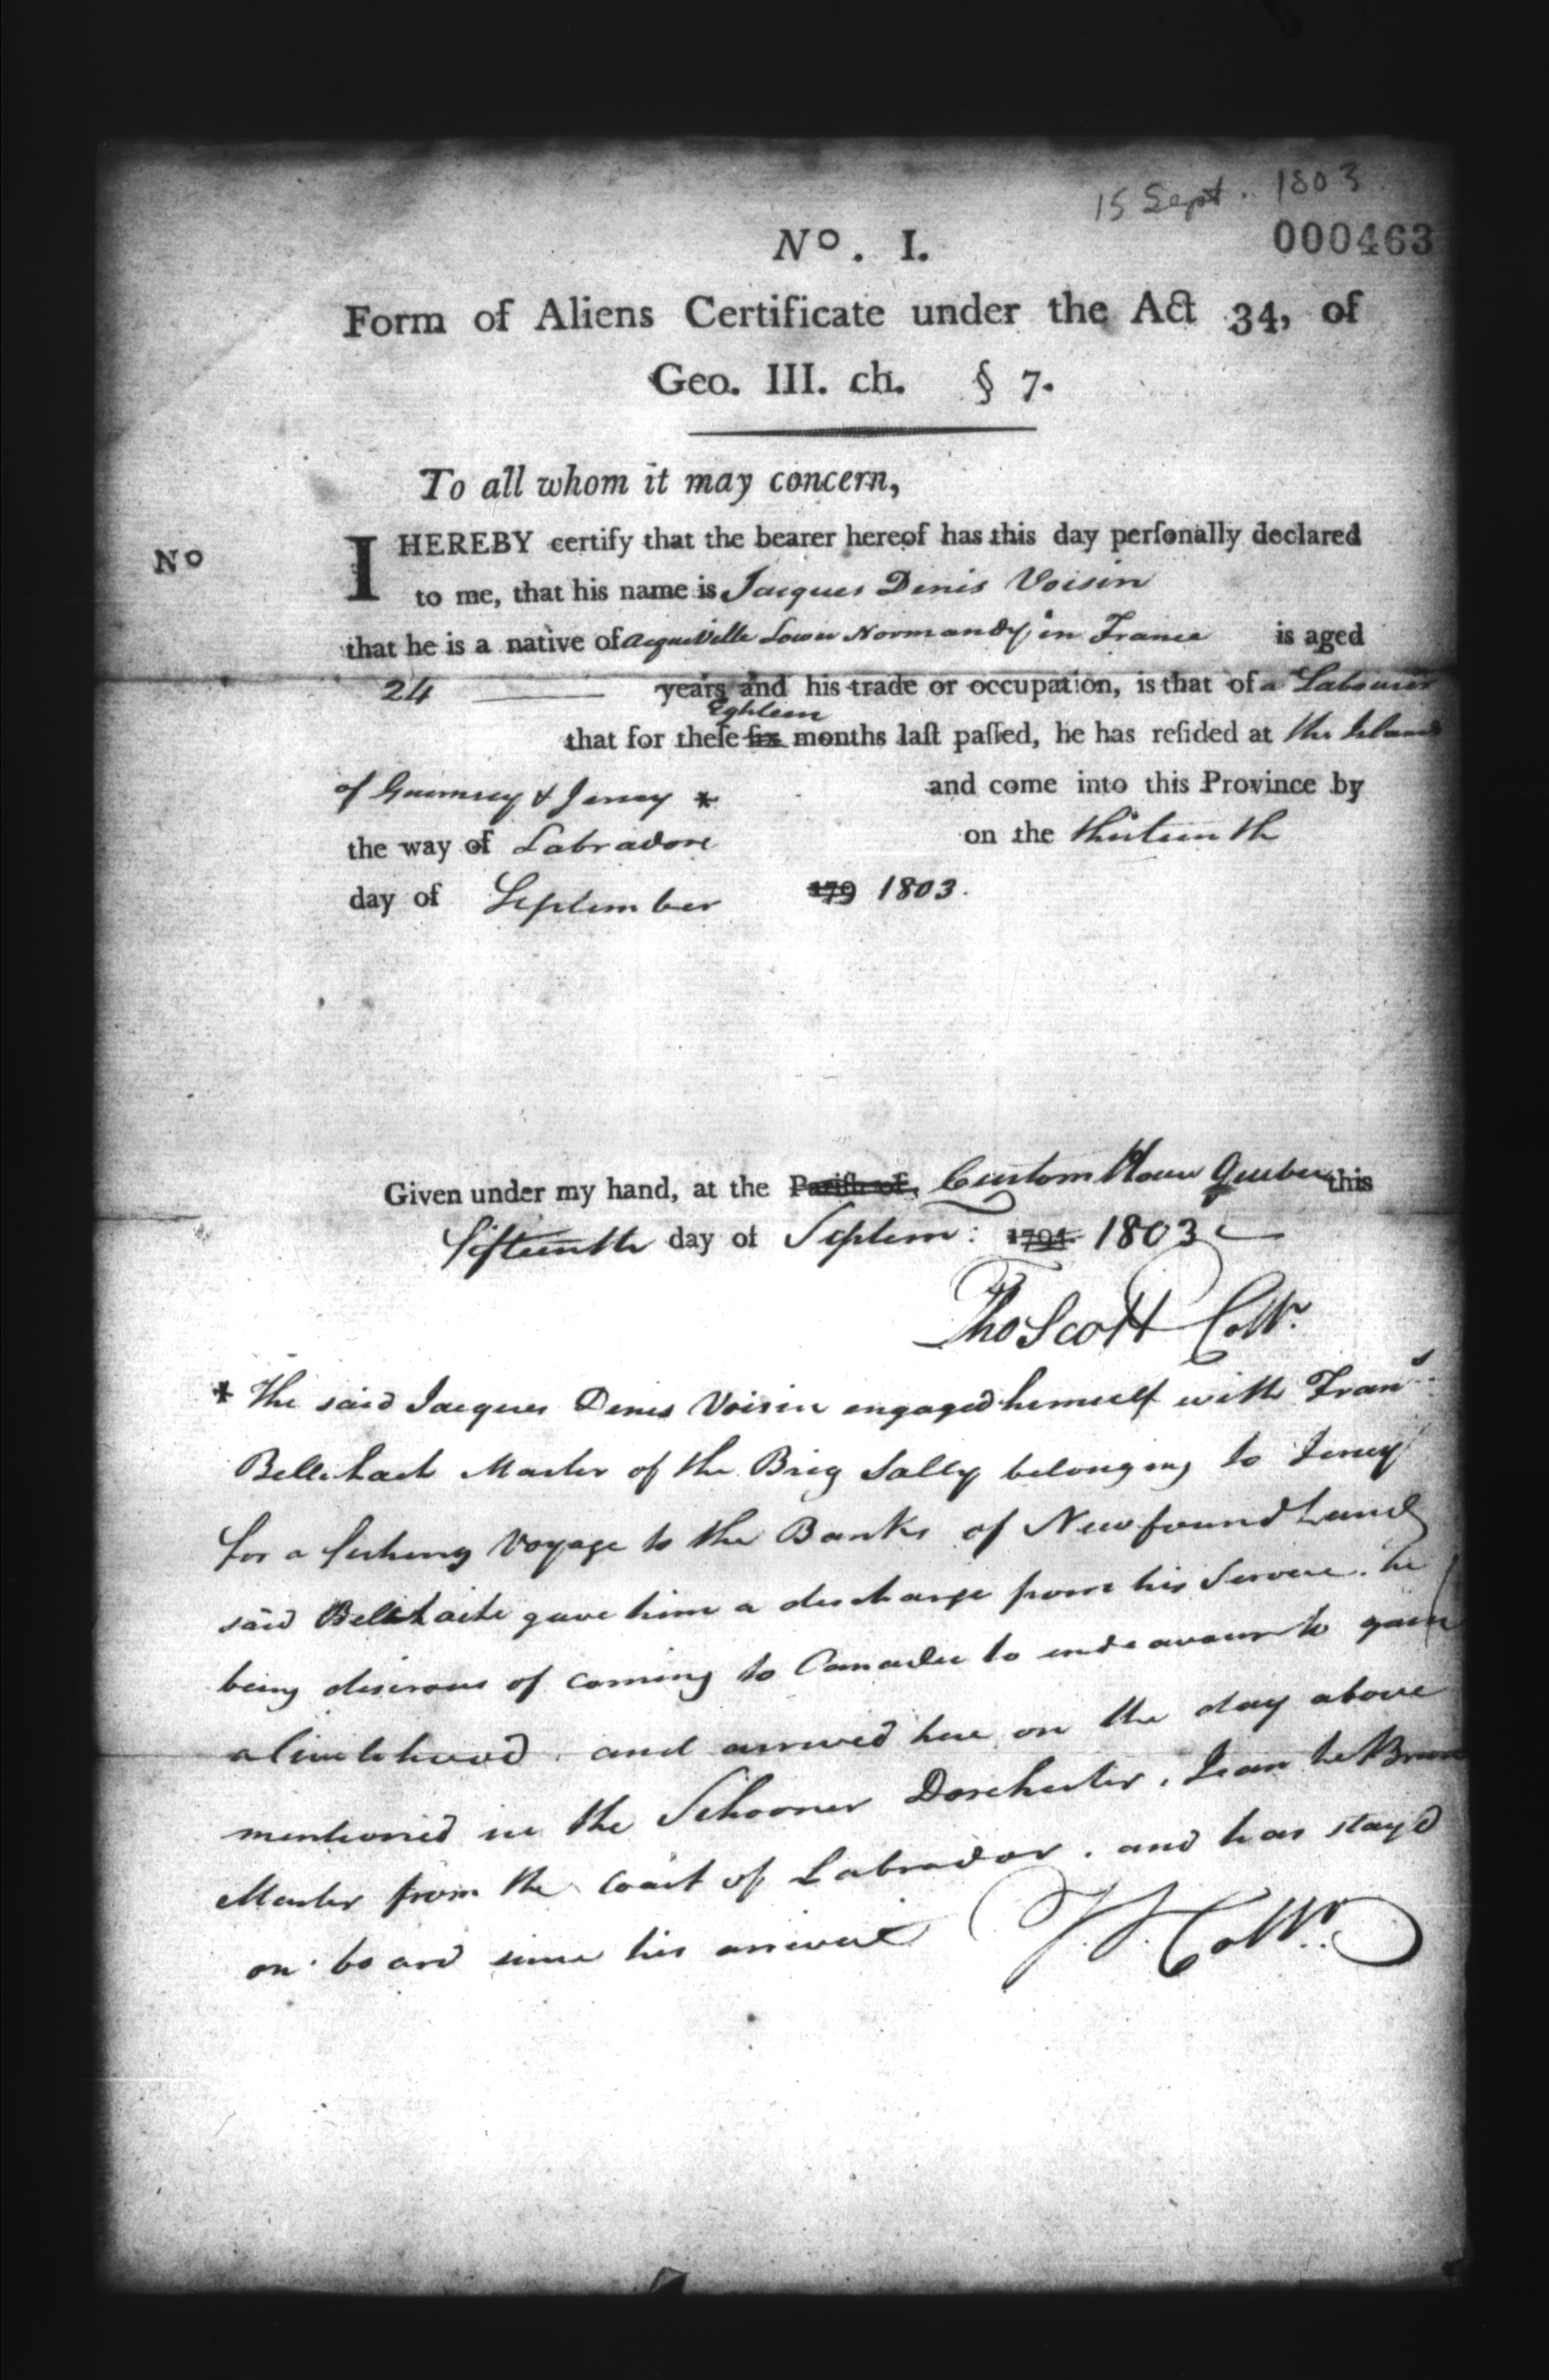 15 Sept. 1803
000463
No. I.
Form of Aliens Certificate under the Act 34, of
Geo. III. ch. § 7.
To all whom it may concern,
No
I HEREBY certify that the bearer hereof has this day perſonally declared
to me, that his name is Jacques Denis Voisin
that he is a native of Acqueville Lower Normandy in France is aged
24 years and his trade or occupation, is that of a Labourer
Eghteen
that for theſe ſix months laſt paſſed, he has reſided at the Islands
of Guernsey & Jersey * and come into this Province by
the way of Labradore on the thirteenth
day of September 179 1803.
Given under my hand, at the Pariſh of, Custom House Quebec this
fifteenth day of Septem: 1794 1803
Tho Scott Collr.
* The said Jacques Denis Voisin engaged himself with Frans
Master of the Brig Sally belonging to Jersey
for a fishing Voyage to the Banks of Newfoundland
said gave him a discharge from his Service. he
being desirous of coming to Canada to endeavour to gain
a livelehood. and arrived here on the day above
mentioned in the Schooner Dorchester, Jean Le Brun
Master from the Coast of Labrador. and has stay'd
on board since his arrival T.S. Collr.